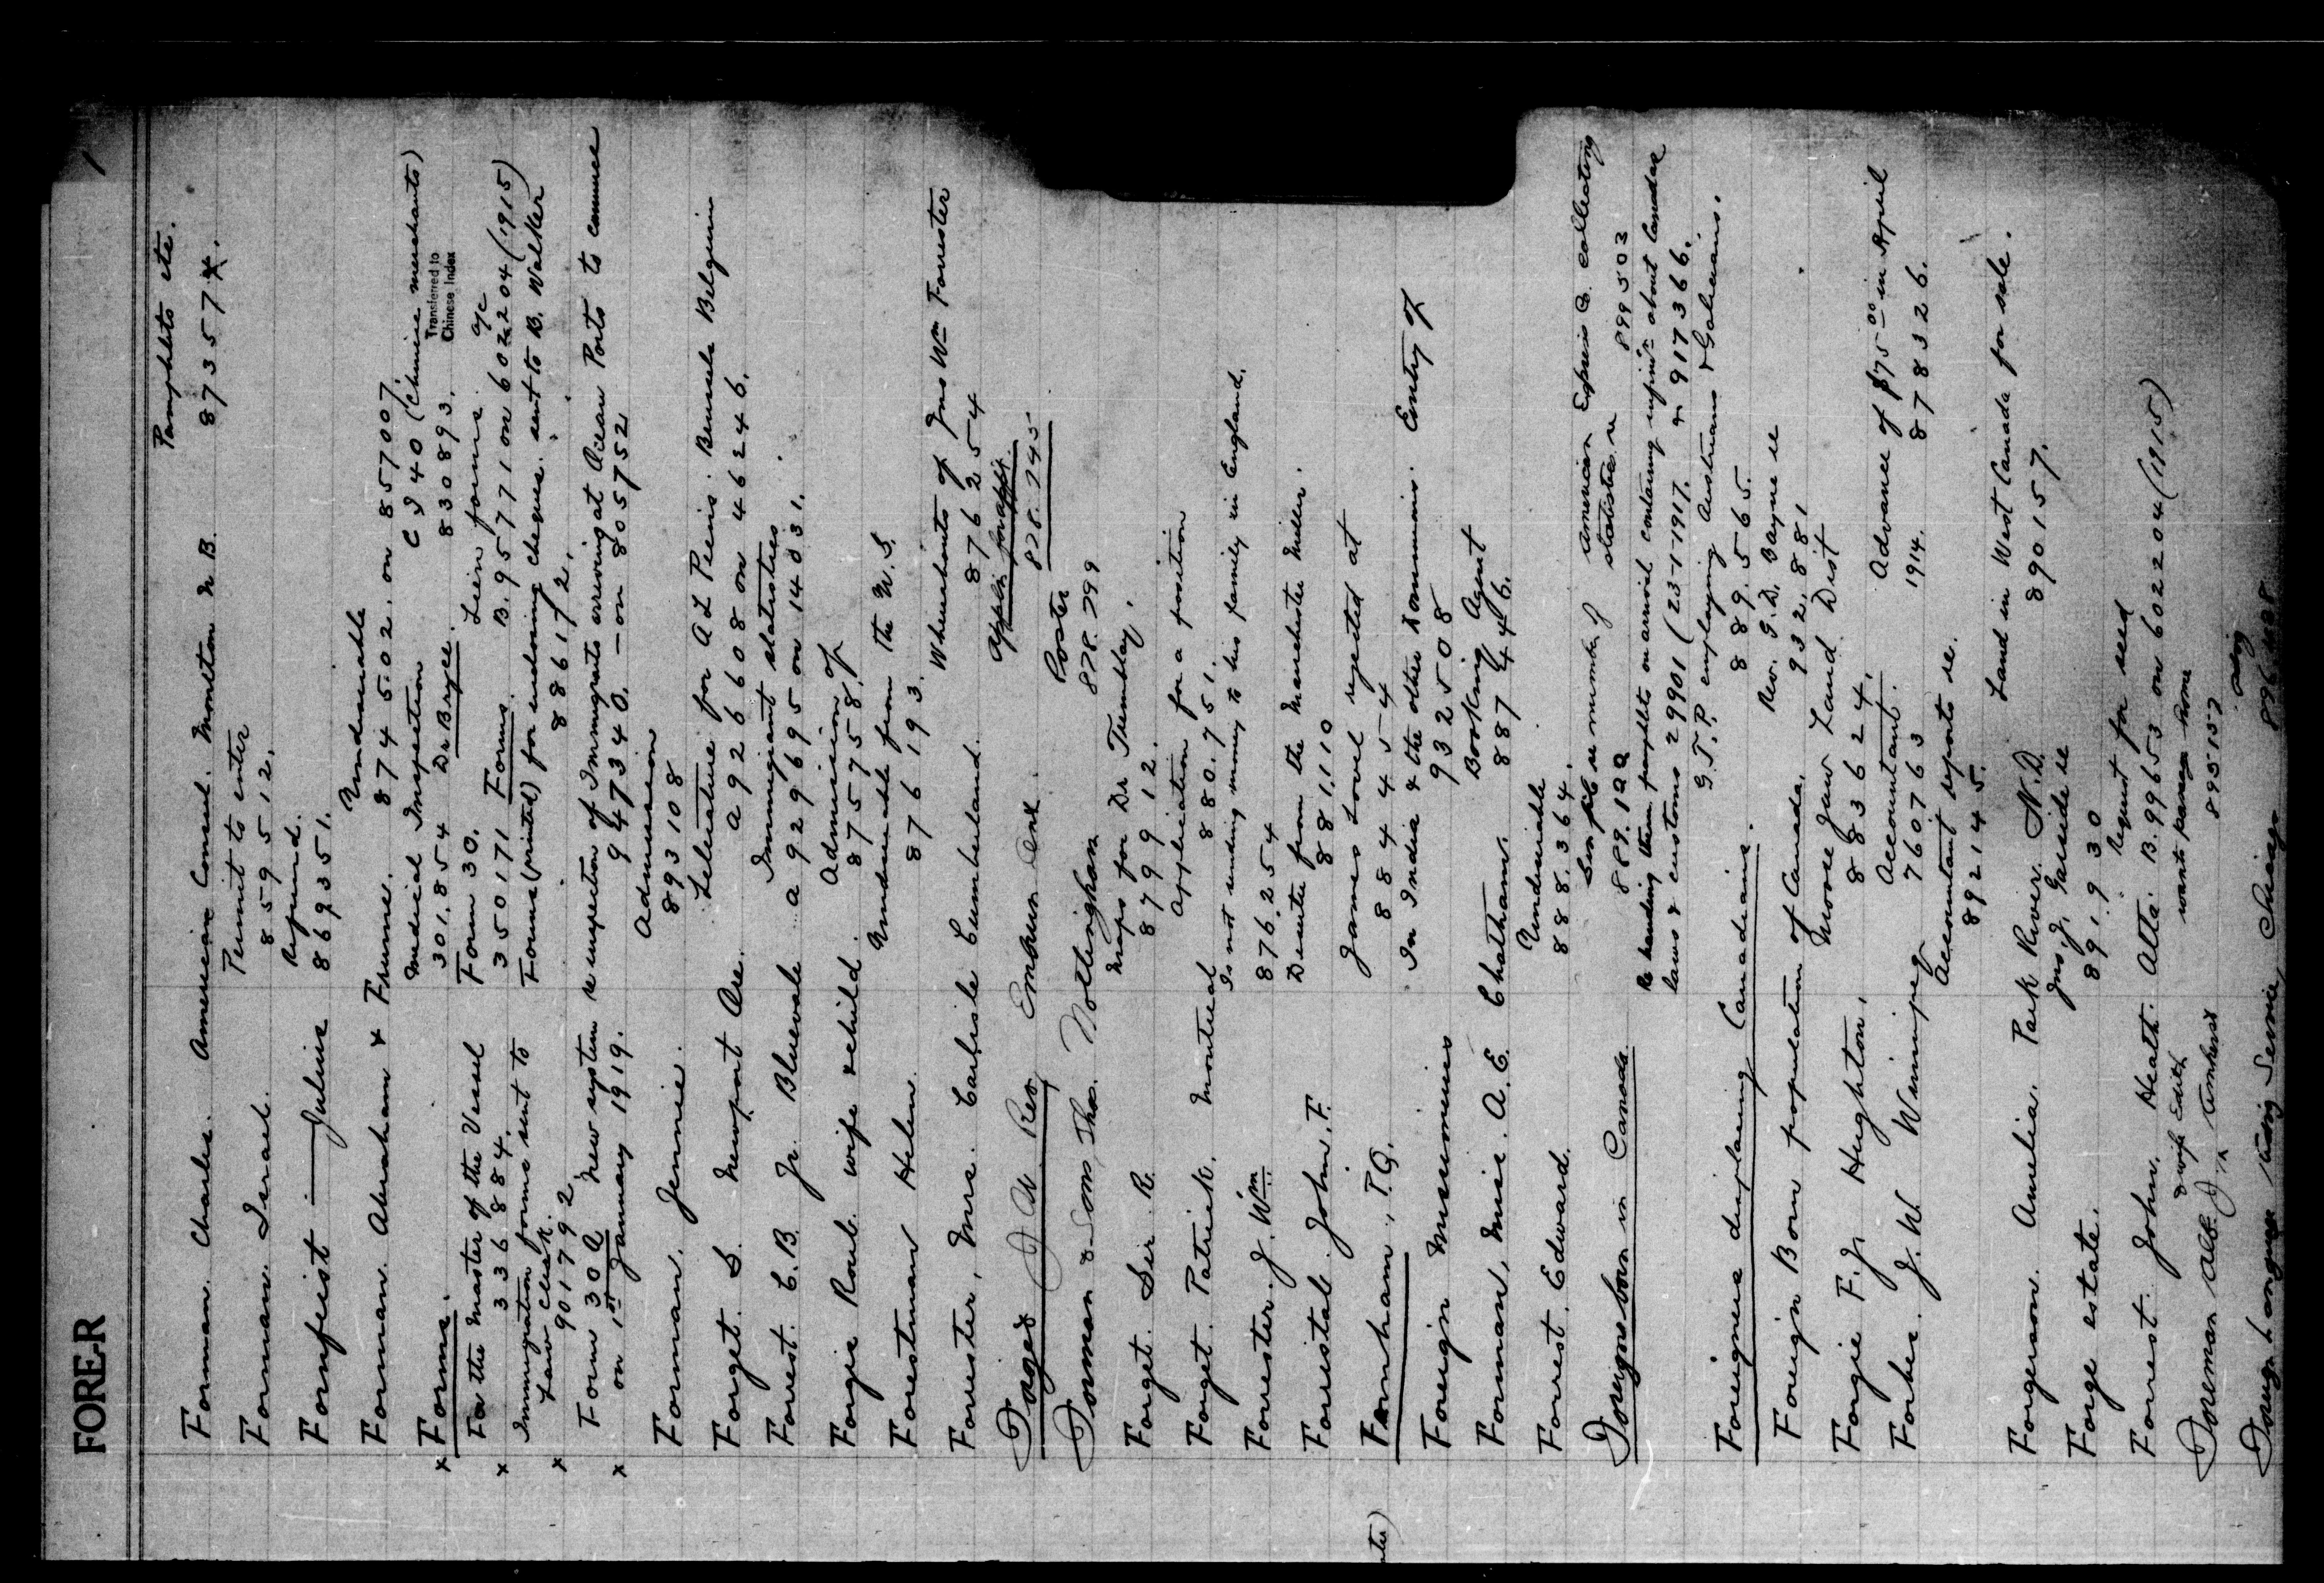 FORER
1
Forman. Charles. American Consul. Moncton N.B. Pamphlets etc.
873574.
Forman. Israel. Permit to enter
859512.
Fornfeist — Julius Refund.
869351.
Forman. Abraham & Frume. Undesirable
874502. on 85700 7.
x Forms. Medical Inspection C 940 (Chinese merchants)
301.854 Dr Bryce. 830893. Transferred to
Chinese Index
For the Master of the Vessel Form 30. Lien forms a/c
x 336884. 350171 Forms. B.957710 on 602204 (1915)
Immigration forms sent to Forms (printed) for endorsing cheques. sent to B. Walker
Law Clerk. 886172.
x 901792
Form 30 A New system re inspection of Immigrants arriving at Ocean Ports to commence
x on 1st January 1919. 947340. — on 805752
Forman. Jennie. Admission
893108
Forget. S. Newport Literature for A L Pieris. Brussels Belgium
A926608 on 46246.
Forrest. C.B. Jr. Bluevale Immigrant statistics
a929695 on 14031.
Forgie Robt. wife & child. Admission of
875758.
Forestman Helen. Undesirable from the U.S.
876193.
Forrester, Mrs. Carlisle Cumberland. Whereabouts of Jno Wm Forrester
876254
J W. Rev Embrun Ont. Applin for appt.
828.745
Forman & Sons Thos. Nottingham Poster
828.799
Forget. Sir R. Maps for Dr Tremblay.
879912.
Forget. Patrick. Montreal Application for a position
880.751.
Forrester. J. Wm. Is not sending money to his family in England.
876.254
Forristal. John. F. Deserter from the Manchester Miller.
881.110
Farnham, P.Q. James Lovel rejected at
884454
Foreign Missionaries In India & the other Dominions. Entry of
932508
Forman, Miss. A.E. Chatham. Booking Agent
887446.
Forrest. Edward. Undesirable
888.364.
Foreigners born in Canada. re number of American Express Co. collecting
statistics re 899503
Re handing them pamphlets on arrival containing infmn about Canadian
laws & customs 29901 (23-1-1917. on 917366.
Foreigners displacing Canadians. G.T.P. employing Austrians & Galicians.
889.565.
Foreign Born population of Canada. Rev. G.D. Bayne re
932.881
Forgie F.J. Hughton. Moose Jaw Land Dist
883624.
Forbes. J.W. Winnipeg Accountant. Advance of $75 00 in April
760763 1914. 878326.
Accountant reports re.
892145.
Forgerson. Amelia. Park River. N.D. Land in West Canada for sale.
890157.
Forge estate. Jno. J. Garside re
891.930
Forrest. John. Heath. Alta. Request for seed
B.99653 on 602204 (1915)
& wife Edith wants passage home
Foreman Alb. J. Amherst 895152
Foreign Language Service, Chicago